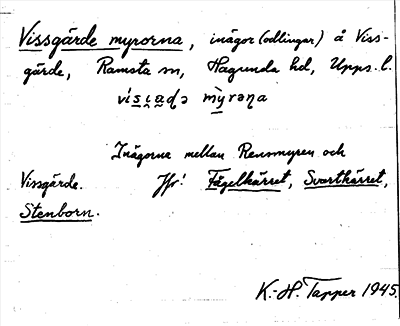 Vissgärde myrorna, inägor (odlingar) å Viss-
gärde, Ramsta sn, Hagunda hd, Upps. l.
myrəṇa
Inägorna mellan Rensmyren och
Vissgärde. Jfr! Fågelkärret, Svartkärret,
Stenborn.
K.-H. Tapper 1945.